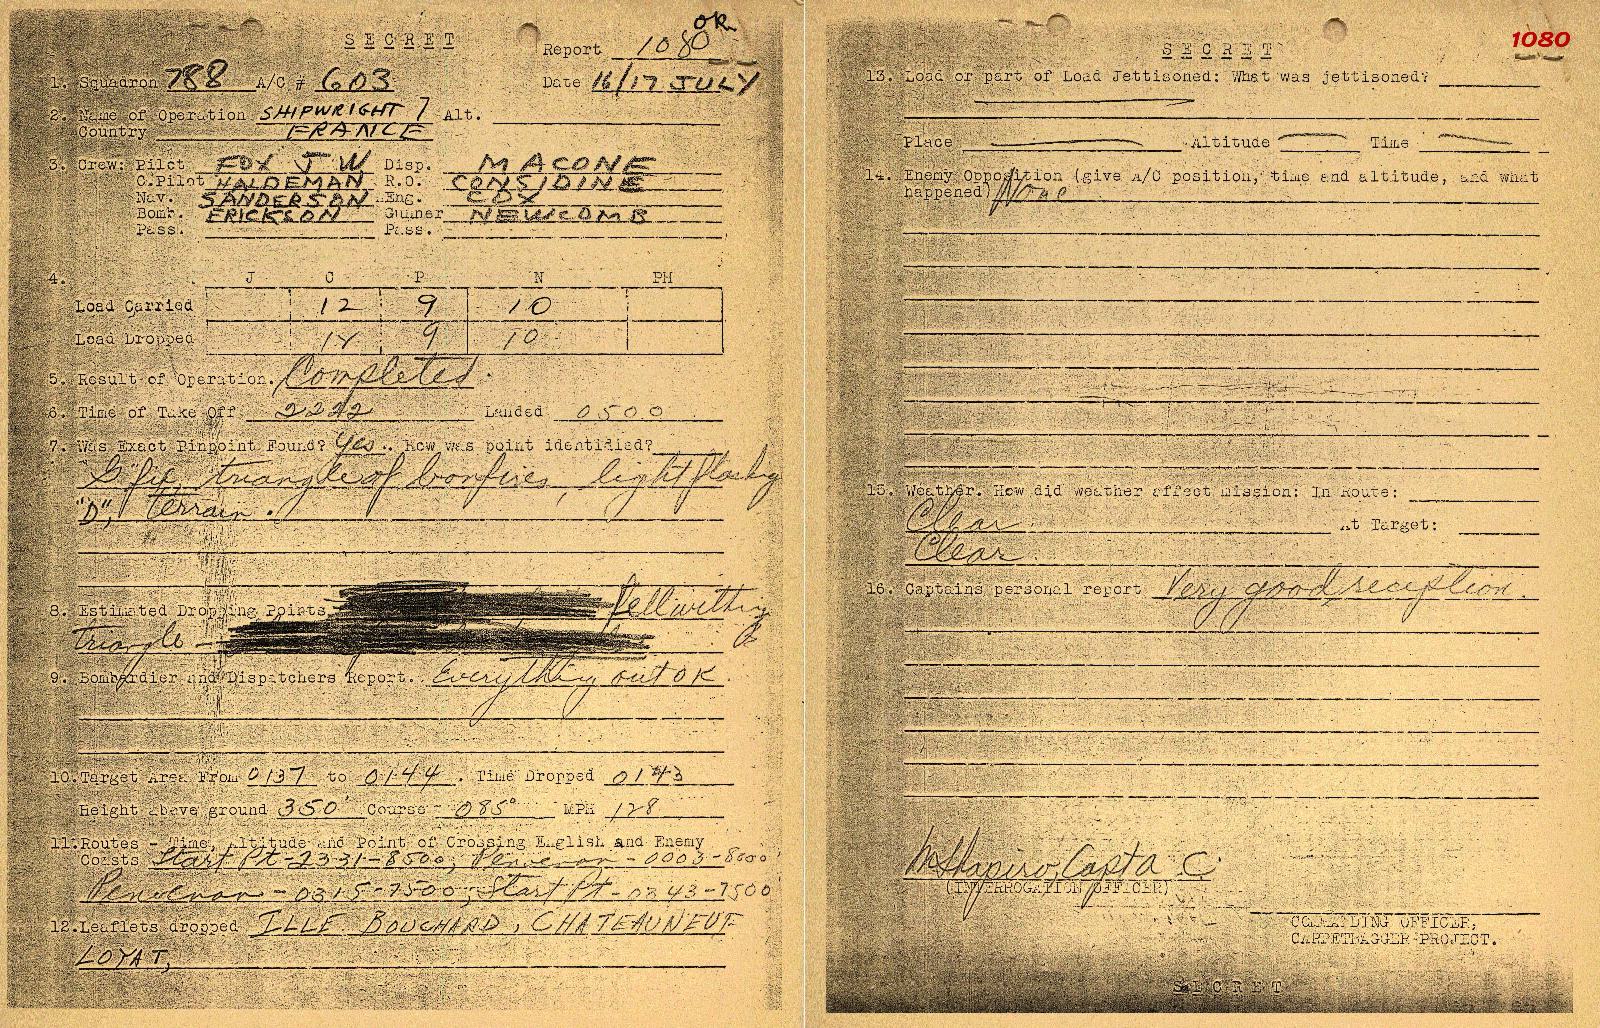 SECRET
OK
Report 1080
1. Squadron 788 A/C # 603 Date 16/17 JULY
2. Name of Operation SHIPWRIGHT 7 Alt.
Country FRANCE
3. Crew: Pilot FOX J W Disp. MACONE
C.Pilot HALDEMAN R.O. CONSIDINE
Nav. SANDERSON Eng. COX
Bomb. ERICKSON Gunner NEWCOMB
Pass. Pass.
4. J C P N PH
Load Carried 12 9 10
Load Dropped 9 10
5. Result of Operation. Completed.
6. Time of Take Off 2222 Landed 0500
7. Was Exact Pinpoint Found? Yes.. How was point identified?
triangle of bonfires, light flashing
"D", terrain.
8. Estimated Dropping Points. Fell within
triangle -
9. Bombardier and Dispatchers Report.. Everything out OK.
10. Target Area From 0137 to 0144. Time Dropped 0143
Height above ground 350' Course - 085° MPH 128
11. Routes - Time, Altitude and Point of Crossing English and Enemy
Coasts Start Pt-2331-8500; Penvenan - 0003-8000'
Penvenan - 0315-7500; Start Pt-0343-7500
12. Leaflets dropped ILLE BOUCHARD, CHATEAUNEUF
LOYAT,
1080
SECRET
13. Load or part of Load Jettisoned: What was jettisoned?
Place Altitude Time
14. Enemy Opposition (give A/C position, time and altitude, and what
happened) None
15. Weather. How did weather affect mission: In Route:
Clear At Target:
Clear
16. Captains personal report Very good reception.
M Shapiro, Capt A.C.
(INTERROGATION OFFICER)
COMMANDING OFFICER,
CARPETBAGGER PROJECT.
SECRET